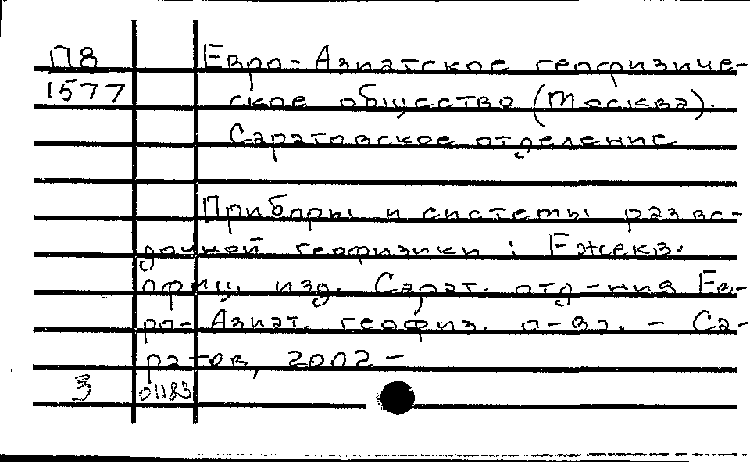 П8 Евро-Азиатское геофизиче-
1577 ское общество (Москва).
Саратовское отделение
Приборы и системы разве-
дочной геофизики : Ежекв.
офиц. изд. Сарат. отд-ния Ев-
ро-Азиат. геофиз. о-ва. - Са-
ратов, 2002 -
3 01183